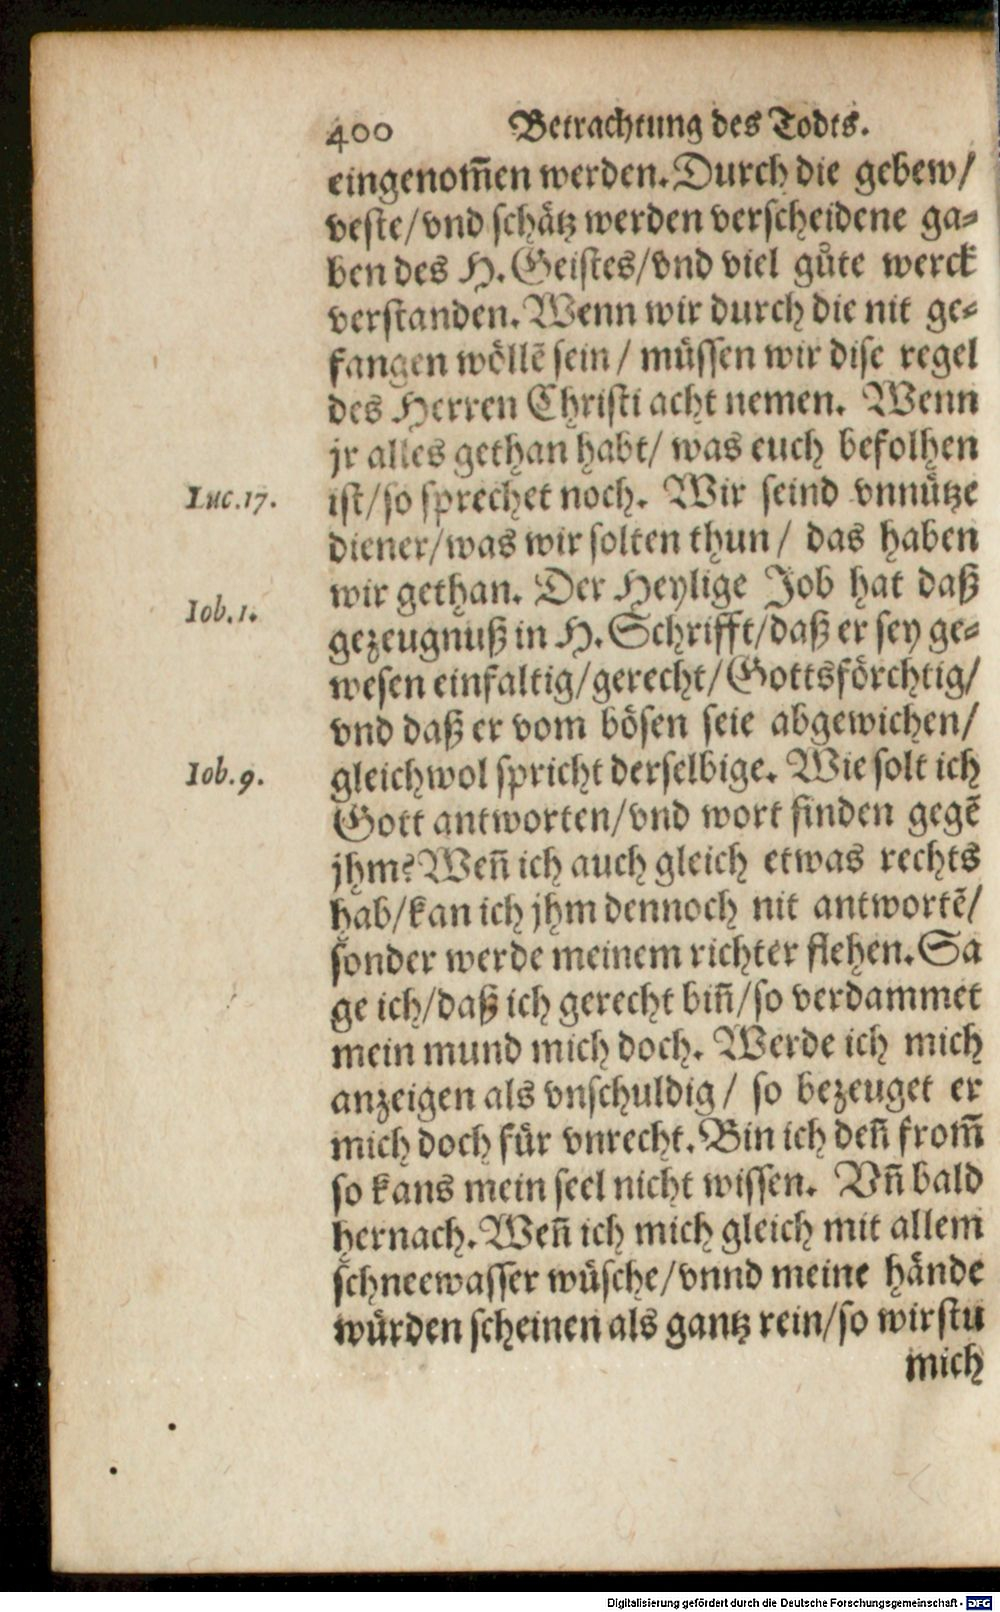 400 Betrachtung des Todts.
eingenom̄en werden. Durch die gebew/
veste/vnd schätz werden verscheidene ga-
ben des H. Geistes/vnd viel gůte werck
verstanden. Wenn wir durch die nit ge-
fangen wöllē sein / müssen wir dise regel
des Herren Christi acht nemen. Wenn
jr alles gethan habt/ was euch befolhen
Luc.17.
ist/so sprechet noch. Wir seind vnnütze
diener/was wir solten thun / das haben
wir gethan. Der Heylige Job hat daß
Iob.1.
gezeugnuß in H. Schrifft/daß er sey ge-
wesen einfaltig/gerecht/Gottsförchtig/
vnd daß er vom bösen seie abgewichen/
Iob.9.
gleichwol spricht derselbige. Wie solt ich
Gott antworten/vnd wort finden gegē
jhm? Weñ ich auch gleich etwas rechts
hab/kan ich jhm dennoch nit antwortē/
sonder werde meinem richter flehen. Sa
ge ich/daß ich gerecht biñ/so verdammet
mein mund mich doch. Werde ich mich
anzeigen als vnschuldig / so bezeuget er
mich doch für vnrecht. Bin ich deñ from̄
so kans mein seel nicht wissen. Vñ bald
hernach. Weñ ich mich gleich mit allem
schneewasser wüsche/vnnd meine hände
würden scheinen als gantz rein/so wirstu
mich
Digitalisierung gefördert durch die Deutsche Forschungsgemeinschaft - DFG